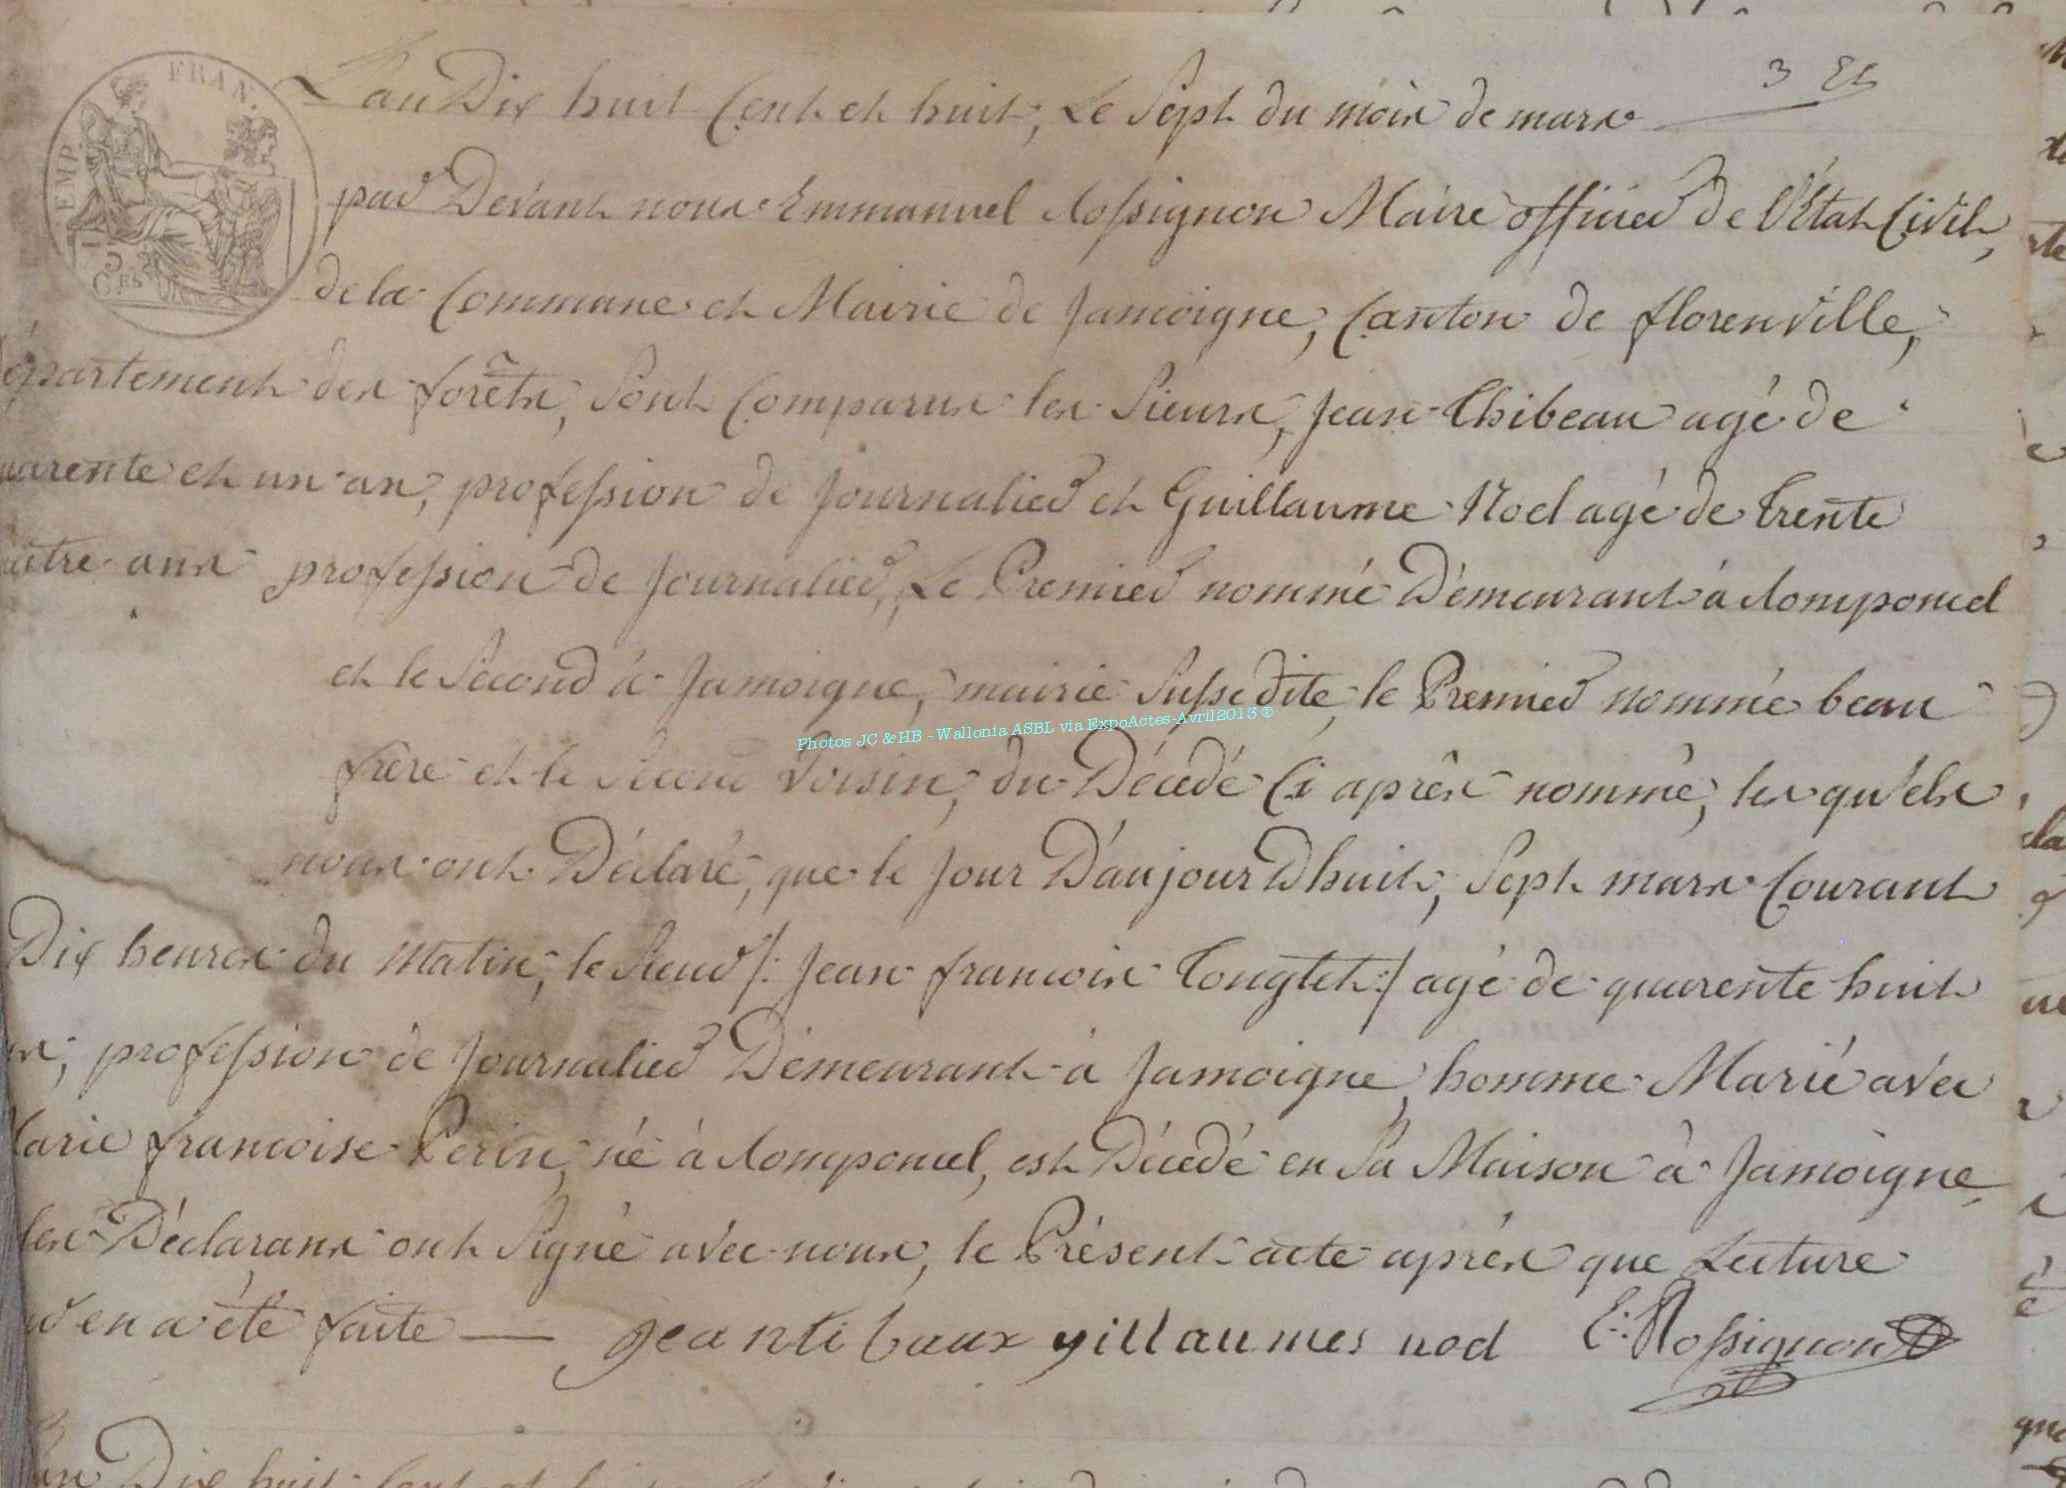 3 
L'an Dix huit Cent et huit, Le Sept du mois de mars
par Devant nous Emmanuel Rossignon Maire officier de l'Etat Civil,
de la Commune et Mairie de Jamoigne, Canton de florenville,
épartement des forêts, Sont Comparus les Sieurs, Jean Thibeau agé de
uarente et un an, profession de Journalier et Guillaume Noel agé de trente
uatre ans profession de Journalier, Le Premier nommé Démeurant à Romponcel
et le Second à Jamoigne, mairie Sussedite, le Premier nommé beau
frère et le Second Voisin, du Décédé Ci après nommé, les qu'els
nous ont Déclaré, que le Jour D'aujourDhuit, Sept mars Courant
Dix heures du Matin, le Sieur /: Jean francois Tongtet :/ agé de quarente huit
ns, profession de Journalier Démeurant à Jamoigne, homme Marié avec
Marie francoise Perin, né à Romponcel, est Décédé en Sa Maison à Jamoigne,
les Déclarans ont Signé avec nous, le Présent acte après que Lecture
ur en a été faite — jean tibaux gillaumes noel E: Rossignon
Dix huit Cent et
EMP. FRAN.
C.ES
Photos JC & HB - Wallonia ASBL via ExpoActes-Avril2013 ©